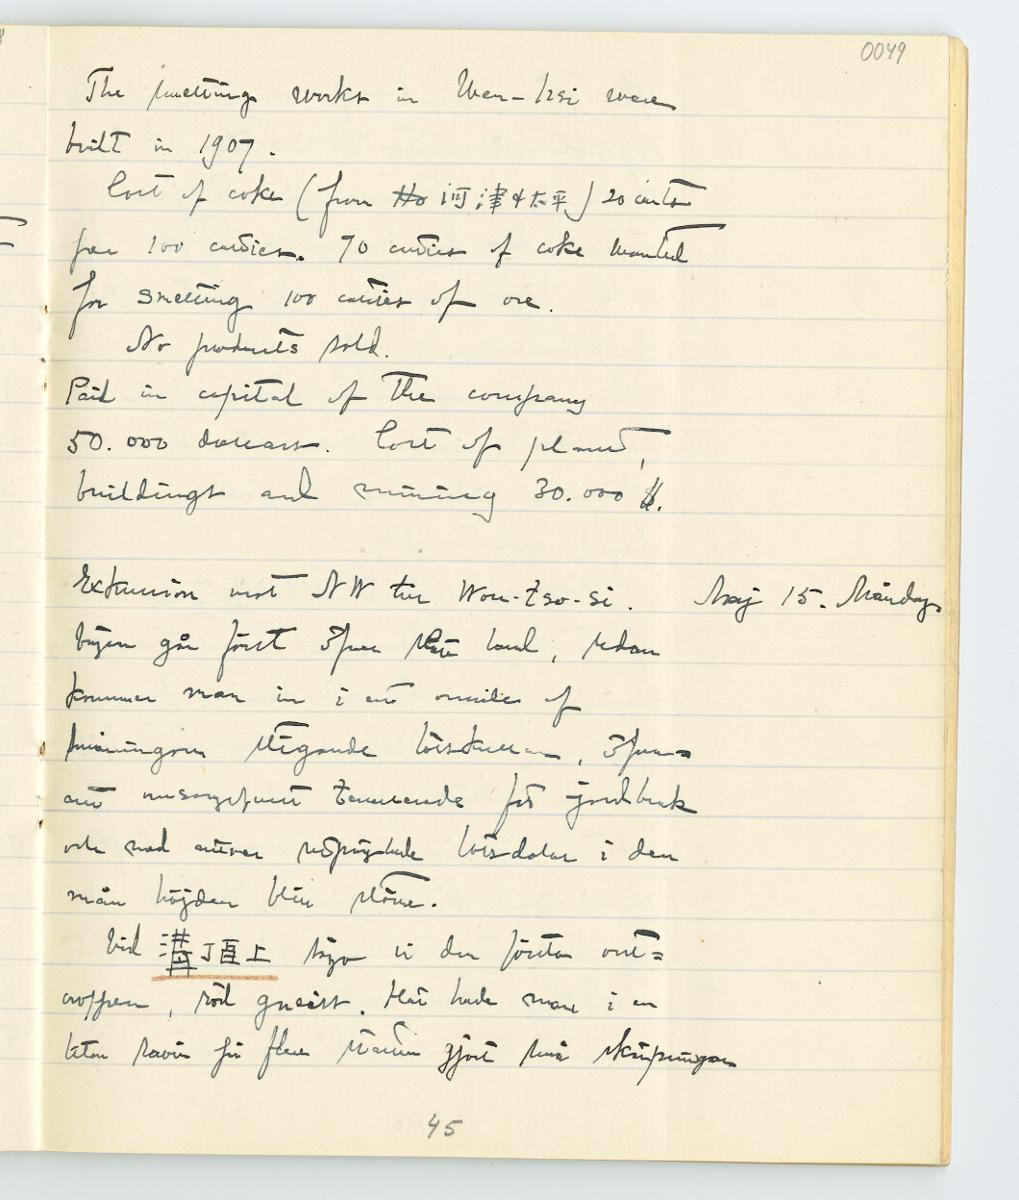 0049
The smelting works in Wen-hsi were
built in 1907.
Cost of coke (from Ho 河津 & 太平) 20 cents
per 100 catties. 70 catties of coke wanted
for smelting 100 catties of ore.
No products sold.
Paid in capital of the company
50.000 dollars. Cost of plant,
buildings and mining 30.000 $.
Exkursion mot NW till Wou-Tso-si. Maj 15. Måndag.
Vägen går först över slätt land, sedan
kommer man in i ett område af
småningom stigande lösskullar, över=
allt terrasserade för jordbruk
och med allt mer lössdalar i den
mån höjden blir större.
Vid 溝頂上 sågo vi den första out=
croppen, röd gneiss. Här hade man i en
liten ravin för flera gjort små skärpningar
45